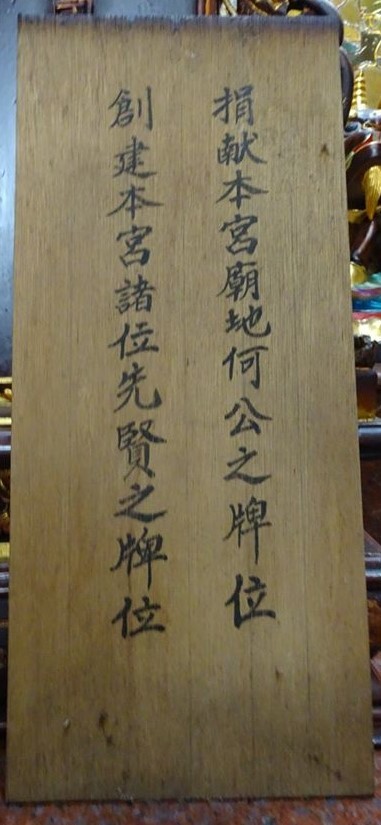 捐献本宮廟地何公之牌位
創建本宮諸位先賢之牌位